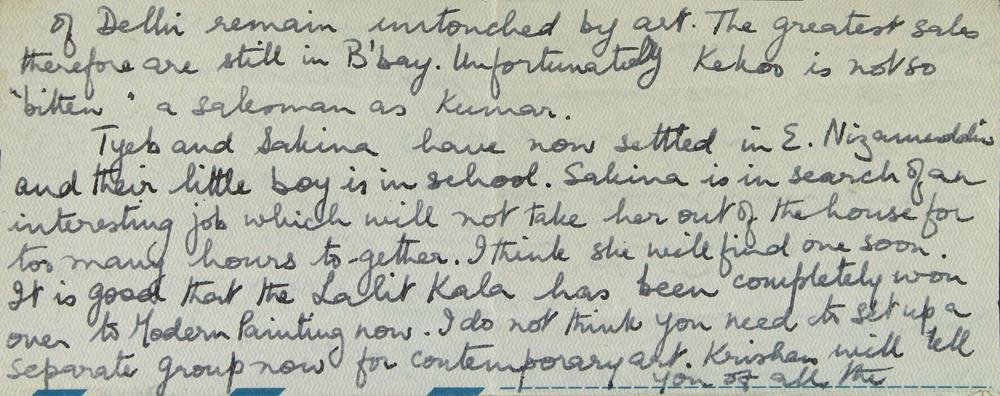 of Delhi remain untouched by art. The greatest sales
therefore are still in B'bay. Unfortunately Kekoo is not so
"bitten" a salesman as Kumar.
Tyeb and Sakina have now settled in E. Nizamuddin
and their little boy is in school. Sakina is in search of an
interesting job which will not take her out of the house for
too many hours to-gether. I think she will find one soon.
It is good that the Lalit Kala has been completely won
over to Modern Painting now. I do not think you need to set up a
separate group now for contemporary art. Krishan will tell
you of all the